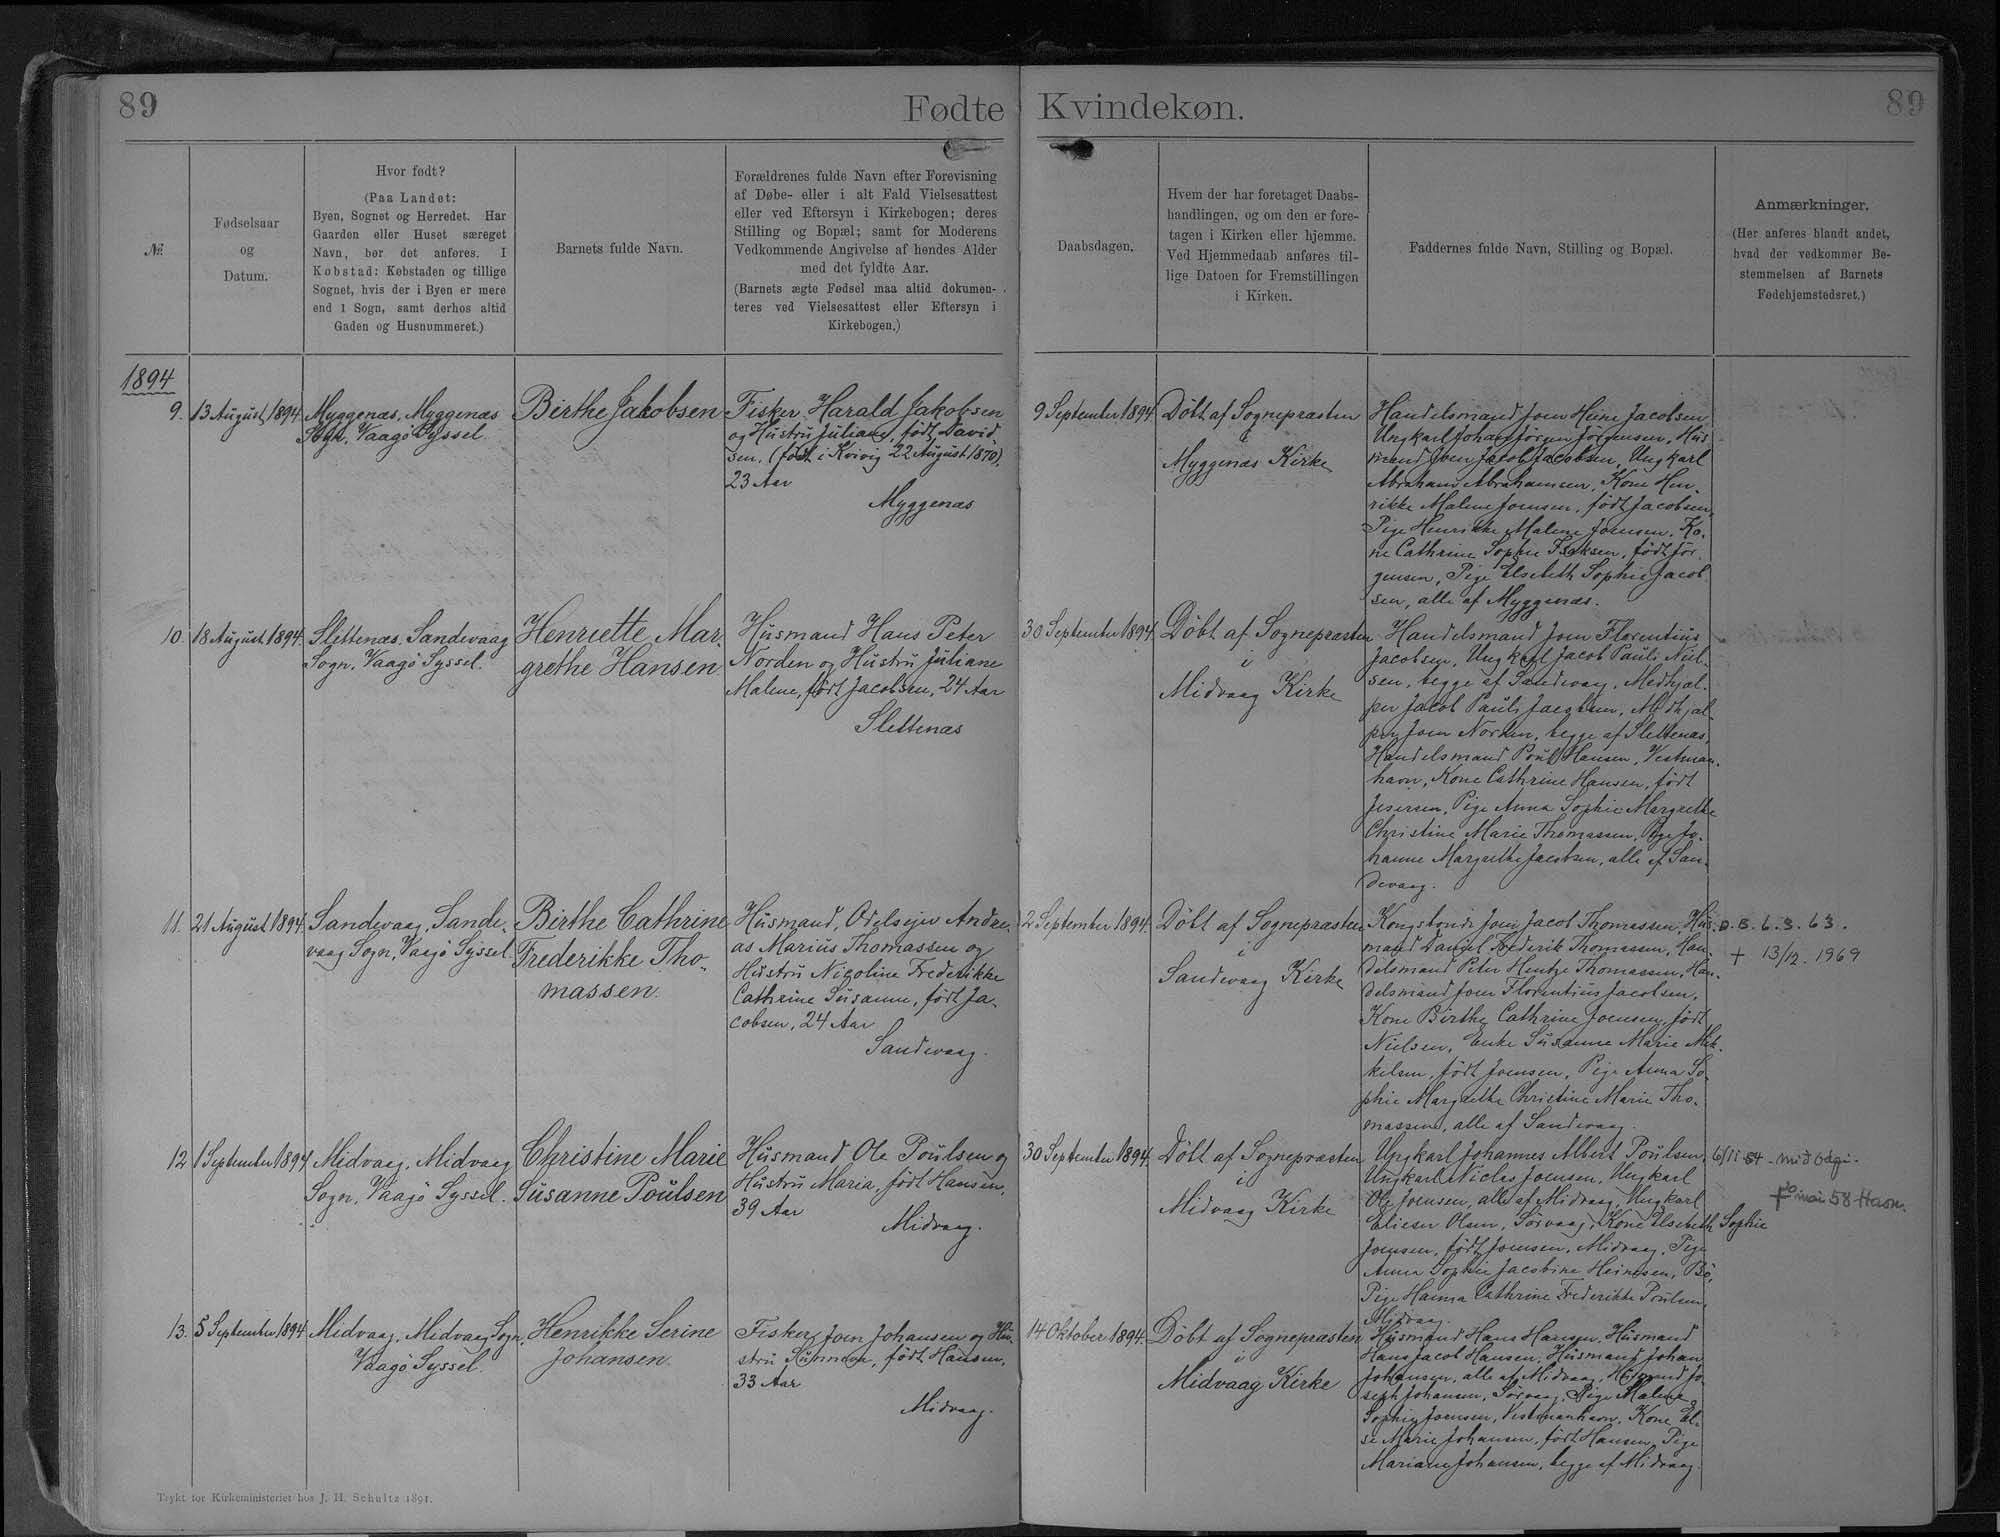 89
Fødte
Kvindekøn.
89
№
Fødselsaar
og
Datum.
Hvor født?
(Paa Landet:
Byen, Sognet og Herredet. Har
Gaarden eller Huset særeget
Navn, bør det anføres. I
Købstad: Købstaden og tillige
Sognet, hvis der i Byen er mere
end 1 Sogn, samt derhos altid
Gaden og Husnummeret.)
Barnets fulde Navn.
Forældrenes fulde Navn efter Forevisning
af Døbe- eller i alt Fald Vielsesattest
eller ved Eftersyn i Kirkebogen; deres
Stilling og Bopæl; samt for Moderens
Vedkommende Angivelse af hendes Alder
med det fyldte Aar.
(Barnets ægte Fødsel maa altid dokumen-
teres ved Vielsesattest eller Eftersyn i
Kirkebogen.)
Daabsdagen.
Hvem der har foretaget Daabs-
handlingen, og om den er fore-
tagen i Kirken eller hjemme.
Ved Hjemmedaab anføres til-
lige Datoen for Fremstillingen
i Kirken.
Faddernes fulde Navn, Stilling og Bopæl.
Anmærkninger.
(Her anføres blandt andet,
hvad der vedkommer Be-
stemmelsen af Barnets
Fødehjemstedsret.)
1894
9.
13 August 1894.
Myggenæs, Myggenæs
Sogn, Vaagö Syssel.
Birthe Jakobsen
Fisker Harald Jakobsen
og Hustru Juliane, født David
sen, (født i Kvivig 22 August 1870),
23 Aar
Myggenæs
9 September 1894.
Döbt af Sognepræsten
i
Myggenæs Kirke
Handelsmand Joen Heine Jacobsen,
Ungkarl Johan Jörgen Jörgensen, Hus
mand Joen Jacob Jacobsen, Ungkarl
Abraham Abrahamsen, Kone Hen
rikke Malene Joensen, født Jacobsen,
Pige Henrikke Malene Joensen, Ko-
ne Cathrine Sophie Isaksen, født Jör
gensen, Pige Elsebeth Sophie Jacob
sen, alle af Myggenæs.
10.
18 August 1894.
Slettenæs, Sandevaag
Sogn, Vaagö Syssel.
Henriette Mar-
grethe Hansen
Husmand Hans Peter
Norden og Hustru Juliane
Malene, født Jacobsen, 24 Aar
Slettenæs
30 September 1894.
Döbt af Sognepræsten
i
Midvaag Kirke
Handelsmand Joen Florentius
Jacobsen, Ungkarl Jacob Pauli Niel-
sen, begge af Sandevaag, Medhjæl-
per Jacob Pauli Jacobsen, Medhjæl-
per Joen Norden, begge af Slettenæs,
Handelsmand Poul Hansen, Vestman-
havn, Kone Cathrine Hansen, født
Pige Anna Sophie Margrethe
Christine Marie Thomassen, Pige Jo-
hanne Margrethe Jacobsen, alle af San-
devaag.
11.
21 August 1894.
Sandevaag, Sande-
vaag Sogn, Vaagö Syssel.
Birthe Cathrine
Frederikke Tho-
massen.
Husmand, Odelsejer Andre-
as Marius Thomassen og
Hustru Nicoline Frederikke
Cathrine Susanne, født Ja-
cobsen, 24 Aar
Sandevaag.
2 September 1894.
Döbt af Sognepræsten
i
Sandevaag Kirke
Kongsbonde Joen Jacob Thomassen, Hus-
mand Daniel Frederik Thomassen, Han-
delsmand Peter Hentze Thomassen, Han-
delsmand Joen Florentius Jacobsen,
Kone Birthe Cathrine Joensen, født
Nielsen, Enke Susanne Marie Mik-
kelsen, født Joensen, Pige Anna So-
phie Margrethe Christine Marie Tho-
massen, alle af Sandevaag.
D. B. 6. 3. 63.
+ 13/12. 1969
12
1 September 1894
Midvaag, Midvaag
Sogn, Vaagö Syssel.
Christine Marie
Susanne Poulsen
Husmand Ole Poulsen og
Hustru Maria, født Hansen,
39 Aar
Midvaag.
30 September 1894.
Döbt af Sognepræsten
i
Midvaag Kirke
Ungkarl Johannes Albert Poulsen,
Ungkarl Niclas Joensen, Ungkarl
Ole Joensen, alle af Midvaag, Ungkarl
Elieser Olsen, Sörvaag, Kone Elsebeth Sophie
Joensen, født Joensen, Midvaag, Pige
Anna Sophie Jacobine Heinesen, Bö,
Pige Hanna Cathrine Frederikke Poulsen,
Midvaag.
6/11 54
mai 58 Havn.
13.
5 September 1894
Midvaag, Midvaag Sogn,
Vaagö Syssel.
Henrikke Serine
Johansen.
Fisker Joen Johansen og Hu-
stru Sunneva, født Hansen,
33 Aar
Midvaag.
14 Oktober 1894.
Döbt af Sognepræsten
i
Midvaag Kirke
Husmand Hans Hansen, Husmand
Hans Jacob Hansen, Husmand Johan
Johansen, alle af Midvaag, Husmand Jo
seph Johansen, Sörvaag, Pige Malene
Sophie Joensen, Vestmanhavn, Kone El-
se Marie Johansen, født Hansen, Pige
Mariane Johansen, begge af Midvaag.
Trykt for Kirkeministeriet hos J. H. Schultz 1891.